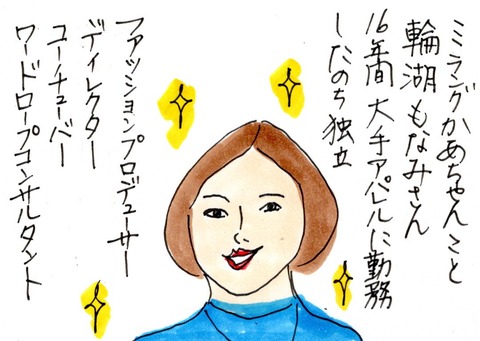 ミラングかあちゃんこと
輪湖もなみさん
16年間大手アパレルに勤務
したのち独立
ファッションプロデューサー
ディレクター
ユーチューバー
ワードローブコンサルタント